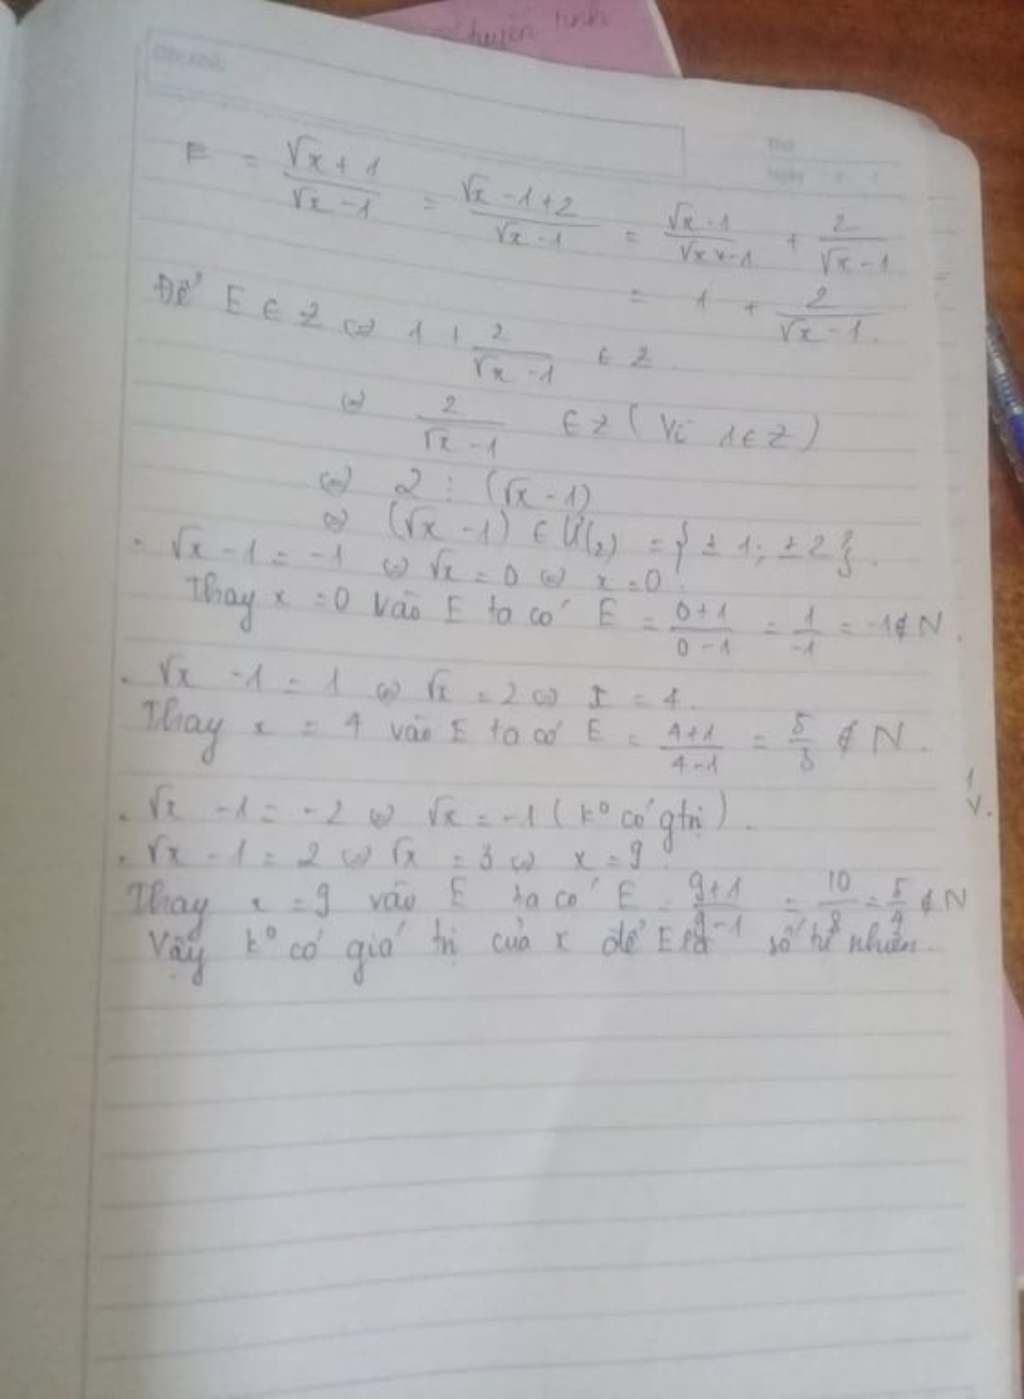 tuyến tính
Thứ
Ngày
E = \frac{\sqrt{x}+1}{\sqrt{x}-1} = \frac{\sqrt{x}-1+2}{\sqrt{x}-1} = \frac{\sqrt{x}-1}{\sqrt{x}-1} + \frac{2}{\sqrt{x}-1}
= 1 + \frac{2}{\sqrt{x}-1}.
Để E ∈ Z ⇔ 1 + \frac{2}{\sqrt{x}-1} ∈ Z.
⇔ \frac{2}{\sqrt{x}-1} ∈ Z (Vì 1 ∈ Z)
⇔ 2 ⋮ (√x - 1)
⇔ (√x - 1) ∈ Ư(2) = {± 1; ± 2}.
• √x - 1 = -1 ⇔ √x = 0 ⇔ x = 0.
Thay x = 0 vào E ta có E = \frac{0+1}{0-1} = \frac{1}{-1} = -1 ∉ N.
• √x - 1 = 1 ⇔ √x = 2 ⇔ x = 4.
Thay x = 4 vào E ta có E = \frac{4+1}{4-1} = \frac{5}{3} ∉ N.
• √x - 1 = -2 ⇔ √x = -1 (k° có gtrị).
• √x - 1 = 2 ⇔ √x = 3 ⇔ x = 9.
Thay x = 9 vào E ta có E = \frac{9+1}{9-1} = \frac{10}{8} = \frac{5}{4} ∉ N
Vậy k° có giá trị của x để E là số tự nhiên.